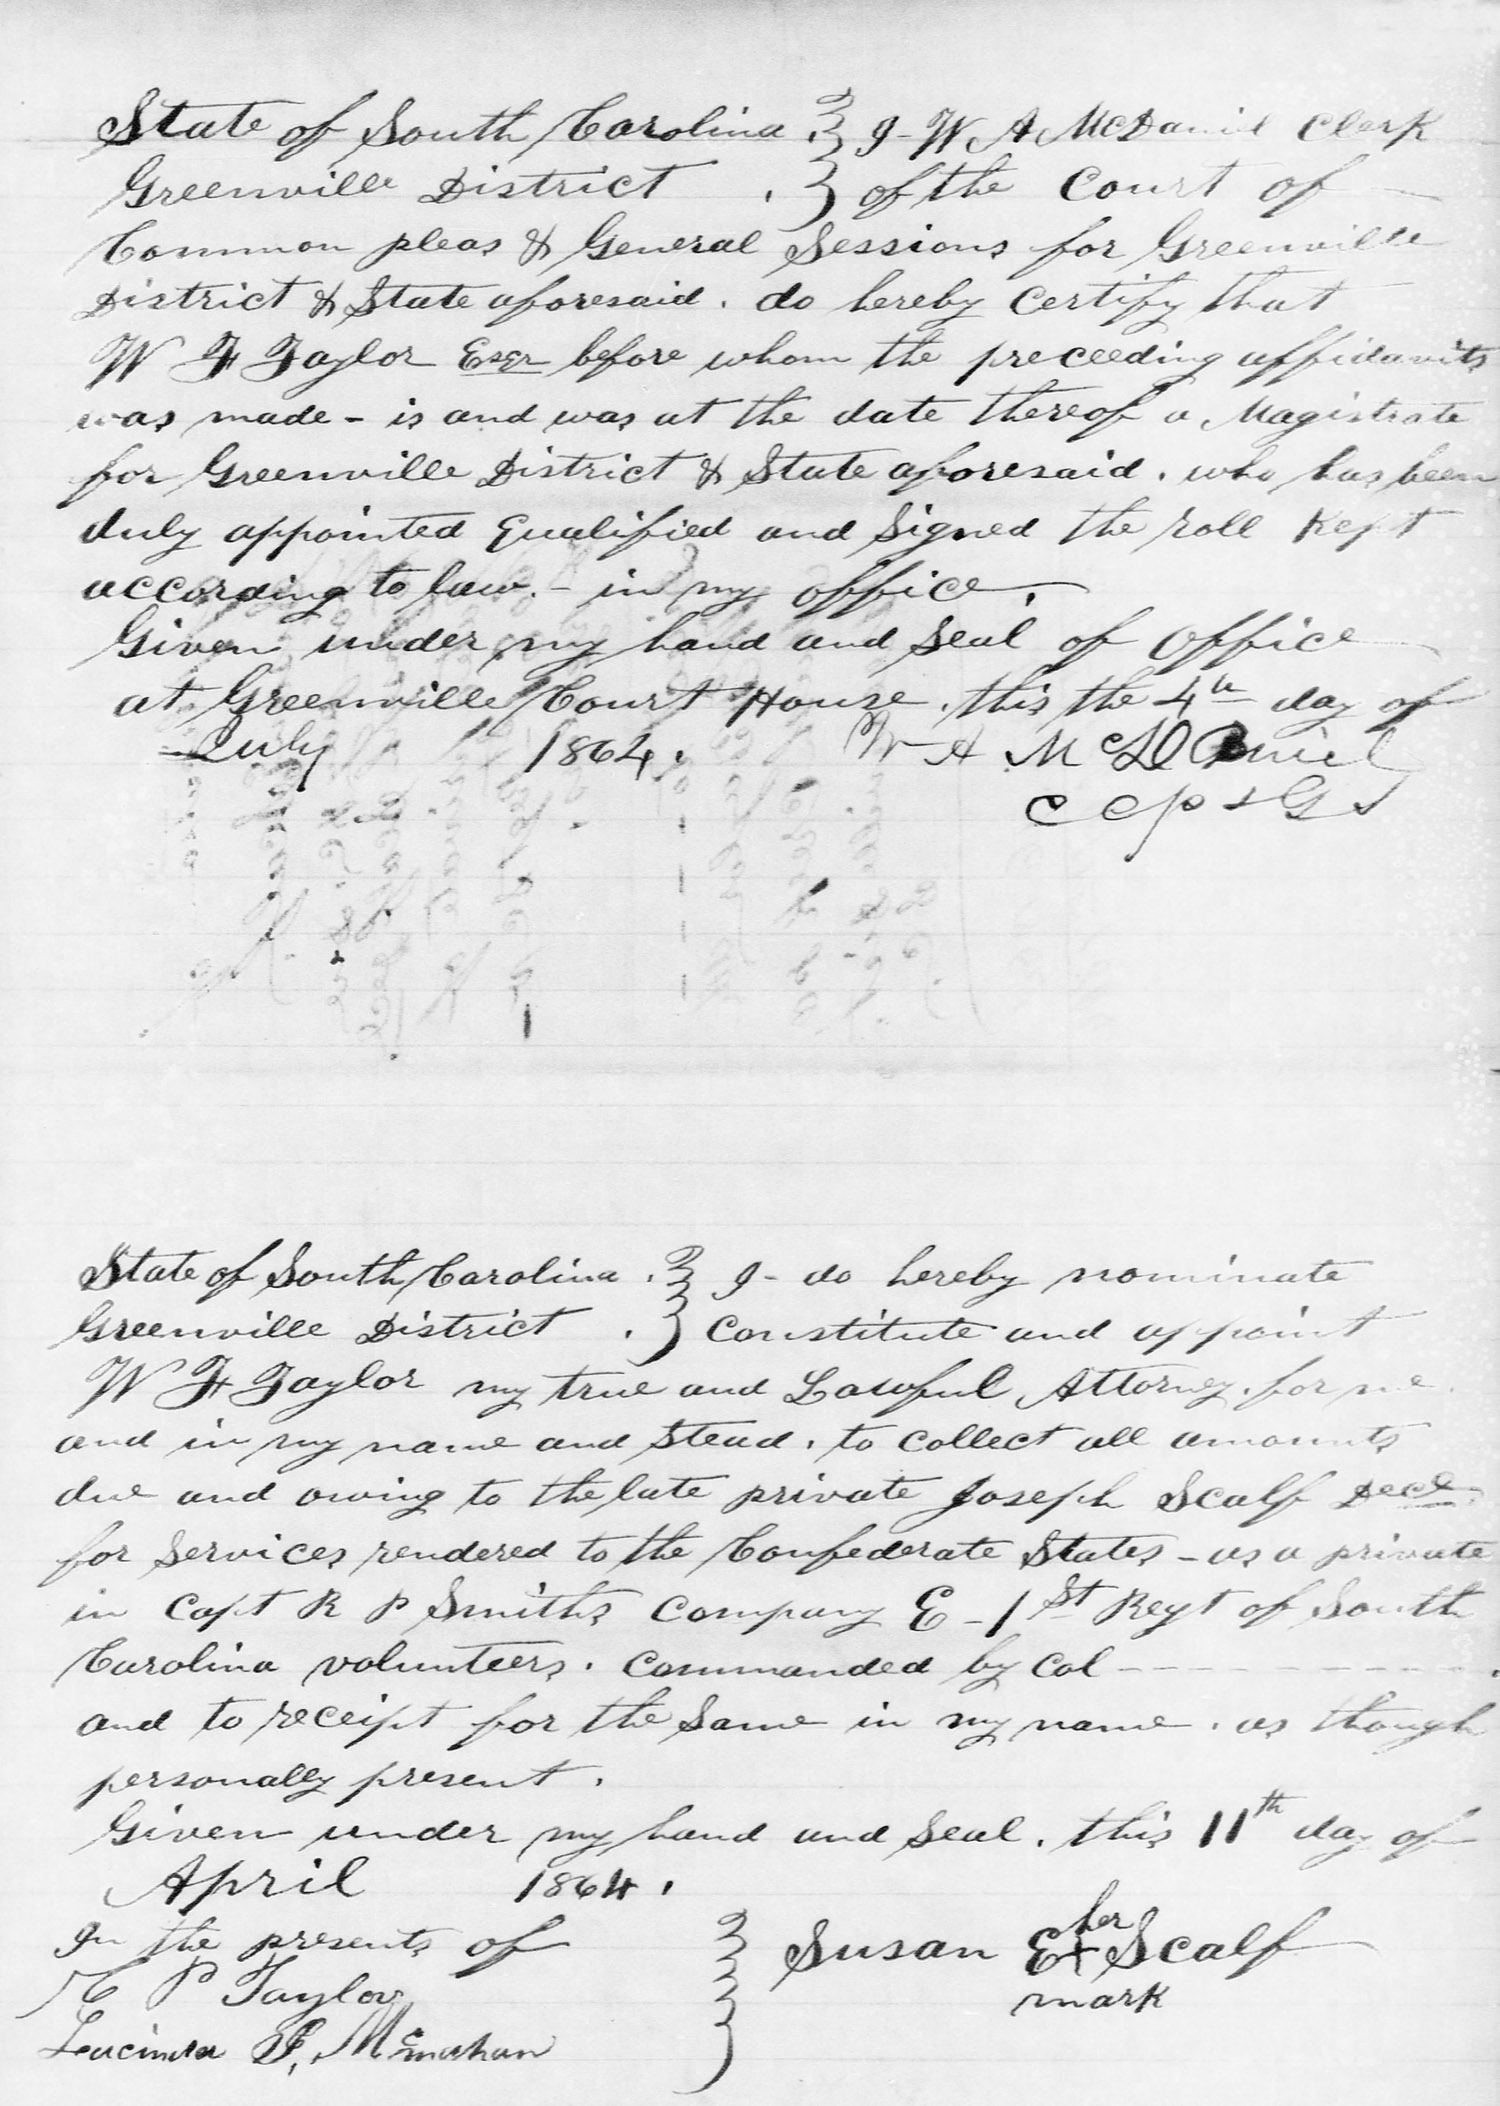 State of South Carolina . } I - W A McDaniel Clerk
Greenville District . } of the Court of
Common pleas & General Sessions for Greenville
District & State aforesaid . do hereby certify that
W F Taylor Esqr before whom the preceeding affidavits
was made - is and was at the date thereof a Magistrate
for Greenville District & State aforesaid . who has been
duly appointed Qualified and Signed the roll Kept
according to law . - in my office .
Given under my hand and Seal of office
at Greenville Court House . this the 4th day of
July 1864 . W A McDaniel
C C P & G S
State of South Carolina . } I - do hereby nominate
Greenville District . } Constitute and appoint
W F Taylor my true and Lawful Attorney . for me .
and in my name and Stead . to Collect all amounts
due and owing to the late private Joseph Scalf Decd
for Services rendered to the Confederate States - as a private
in Capt R P Smiths Company E - 1st Regt of South
Carolina volunteers . Commanded by Col - - - - - - - - - .
and to receipt for the Same in my name . as though
personally present .
Given under my hand and Seal . this 11th day of
April 1864 .
In the presents of
P Taylor
Lucinda
her
Susan E + Scalf
mark